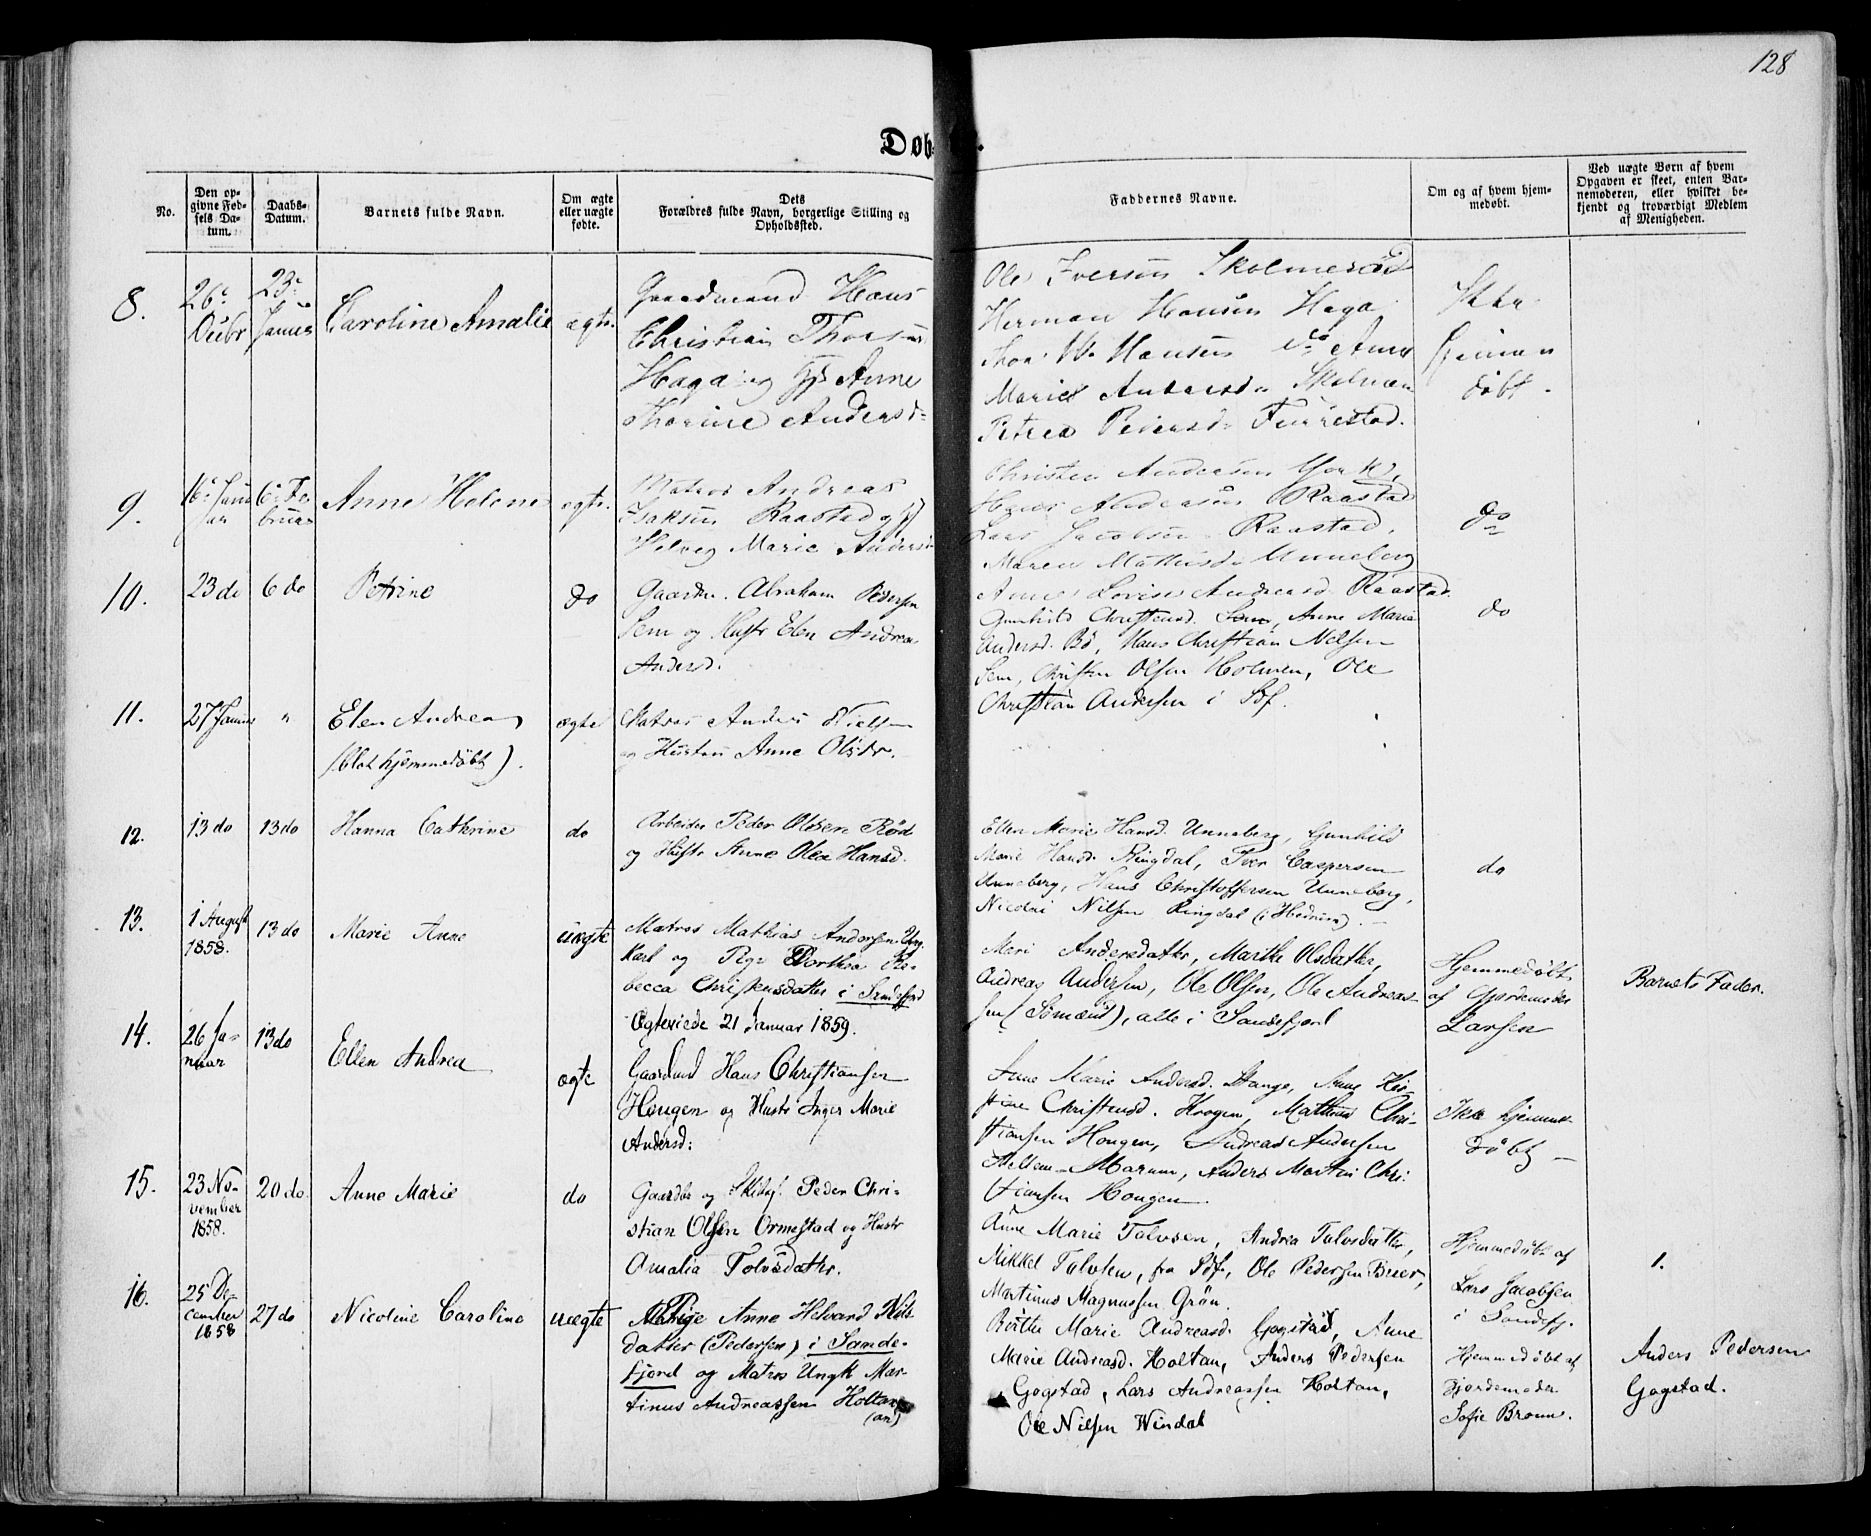 128
Døbte.
No.
Den op-
givne Fød-
sels Da-
tum.
Daabs-
Datum.
Barnets fulde Navn.
Om ægte
eller uægte
fødte.
Dets
Forældres fulde Navn, borgerlige Stilling og
Opholdssted.
Faddernes Navne.
Om og af hvem hjem-
medøbt.
Ved uægte Børn af hvem
Opgaven er skeet, enten Bar-
nemoderen, eller hvilket be-
kjendt og troværdigt Medlem
af Menigheden.
8.
26e
23e
Caroline Amalie
ægte.
Gaardmand Hans
Christian
Haga og Anne
Thorine Andersd=
Ole Iversen
Herman Hansen Haga
Hansen do Anne
Marie Andersd.
Petrea Fevrestad.
døbt.
9.
16e Janu
ar
6e Fe
bruar
Anne Helene
ægte.
Matros Andreas
Isaksen Raastad og
Helveg Marie Andersd
Christen Andersen
Hans Andersen Raastad
Lars Jacobsen Raastad,
Maren Unneberg
Anne Lovise Andreasd Raastad.
do
10.
23 do
6 do
Petrine
do
Gaardm. Abraham Pedersen
Sem og Hustr Elen Andrea
Andersd.
Gunhild Christensd. Sem, Anne Marie
Andersd. Bø, Hans Christian Nelsen
Sem, Christen Olsen Holmen, Ole
Christian Andersen i Sdf.
do
11.
27 Januar
"
Elen Andrea
(blot hjemmedøbt).
ægte
Matros Anders Nielsen
og Hustru Anne Olsdr.
12.
13 do
13 do
Hanna Cathrine
do
Arbeider Peder Olsen Rød
og Hustr Anne Olea Hansd.
Ellen Marie Hansd. Unneberg, Gunhild
Marie Hansd. Ringdal, Iver Caspersen
Unneberg, Hans Christoffersen Unneberg,
Nicolai Nilsen Ringdal (i Hedrum).
do
13.
1 August
1858.
13 do
Marie Anne
uægte
Matros Mathias Andersen Ung
karl og Pige Dorthea Re-
becca Christensdatter i Sandefjord
Ægteviede 21 Januar 1859.
Mari Andersdatter, Marthe Olsdatter,
Andreas Andersen, Ole Olsen, Ole Andreas-
sen (Sømænd), alle i Sandefjord
Hjemmedøbt
af Gjordemoder
Larsen
Barnets Fader.
14.
26 Ja-
nuar
13 do
Ellen Andrea
ægte
Gaardmd Hans Christiansen
Hougen og Hustr Inger Marie
Andersd:
Anne Marie Andersd. Stange, Anne
Christensd. Hougen, Mathias Chri-
stiansen Hougen, Andreas Andersen
Mellem-Marum, Anders Martin Chri-
stiansen Hougen.
Ikke hjemme-
døbt
15.
23 No-
vember
1858.
20 do.
Anne Marie
do
Gaardbr og Peder Chri-
stian Olsen Ormestad og Hustr
Amalia Tolvsdatter.
Anne Marie Tolvsen, Andrea Tolvsdatter,
Mikkel Tolvsen, fra Sdf., Ole Pedersen Brier,
Martinus Magnussen Grøn.
Hjemmedøbt af
Lars Jacobsen
i Sandefj.
1.
16.
25 De-
cember
1858
27 do
Nicoline Caroline
uægte
Pige Anne Helvard Nils-
datter (Pedersen) i Sande-
fjord og Matros Ungk Mar-
tinus Andreassen Holtan
(an)
Berthe Marie Andreasd. Gogstad, Anne
Marie Andreasd. Holtan, Anders Pedersen
Gogstad, Lars Andreassen Holtan,
Ole Nilsen Windal
Hjemmedøbt af
Gjordemoder
Sofie Bruun.
Anders Pedersen
Gogstad.